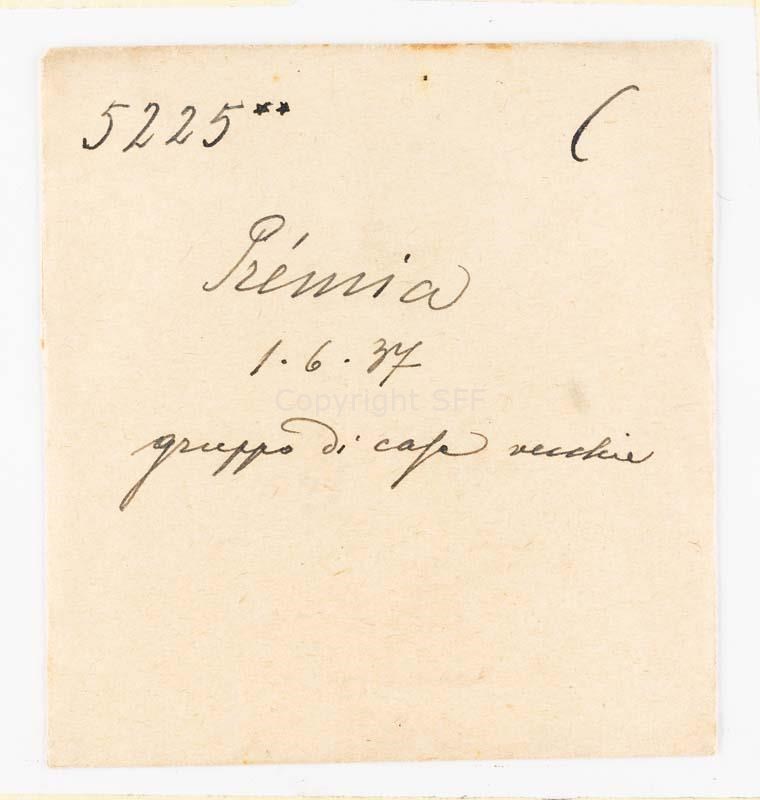 5225** (
Prémia
1.6.37
Copyright SFF
gruppo di case vecchie